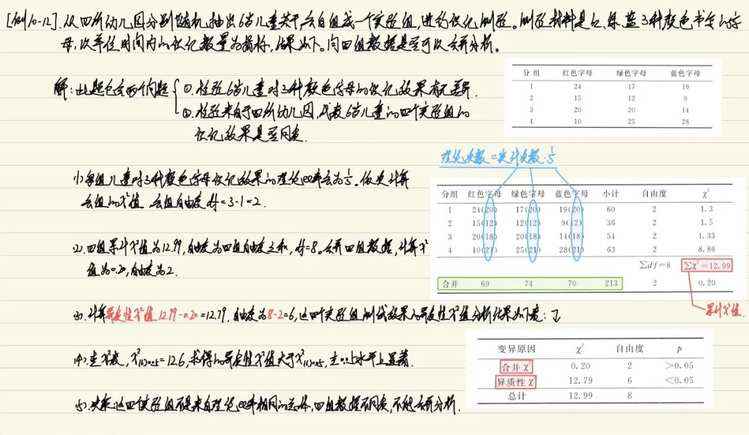 [例10-12].从四所幼儿园分别随机抽出6岁儿童若干,各自组成一个实验组,进行识记测验。测验材料是红、绿、蓝3种颜色书写的字
母,以单位时间内的识记数量为指标,结果如下。问四组数据是否可以合并分析。
解:此题包含两个问题
①.检验6岁儿童对3种颜色字母的识记效果有无差异.
②.检验来自于四所幼儿园,代表6岁儿童的四个实验组的
识记效果是否同质.
分组 红色字母 绿色字母 蓝色字母
1 24 17 19
2 15 12 9
3 20 20 14
4 10 25 28
理论次数=实计次数·1/3
(1)每组儿童对3种颜色字母识记效果的理论概率为1/3。依次计算
各组的χ²值 各组自由度 df=3-1=2.
分组 红色字母 绿色字母 蓝色字母 小计 自由度 χ²
1 24(20) 17(20) 19(20) 60 2 1.3
2 15(12) 12(12) 9(12) 36 2 1.5
3 20(18) 20(18) 14(18) 54 2 1.33
4 10(21) 25(21) 28(21) 63 2 8.86
Σdf=8 Σχ²=12.99
合并 69 74 70 213 2 0.20
累计χ²值.
(2).四组累计χ²值为12.99,自由度为四组自由度之和,df=8。合并四组数据,计算χ²
值为0.20,自由度为2.
(3).计算异质性χ²值 12.99-0.20=12.79.自由度为8-2=6,这四个实验组测试效果的异质性χ²值分析结果如下表:
变异原因 χ² 自由度 p
合并χ² 0.20 2 >0.05
异质性χ² 12.79 6 <0.05
总计 12.99 8
(4).查χ²表, =12.6,求得的异质性χ²值大于 ,在0.05水平上显著.
(5).决策:这四个实验组不是来自理论概率相同的总体,四组数据不同质,不能合并分析.